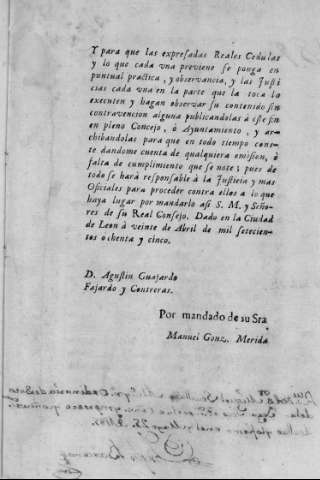 Y para que las expresadas Reales Cedulas
y lo que cada vna previene se ponga en
puntual practica, y observancia, y las Justi
cias cada vna en la parte que la toca lo
executen y hagan observar su contenido sin
contravencion alguna publicandolas á este fin
en pleno Concejo, ò Ayuntamiento, y ar-
chibandolas para que en todo tiempo cons-
te dandome cuenta de qualquiera omision, ò
falta de cumplimiento que se note; pues de
todo se hará responsable à la Justicia y mas
Oficiales para proceder contra ellos a lo que
haya lugar por mandarlo asi S. M. y Seño-
res de su Real Consejo. Dado en la Ciudad
de Leon à veinte de Abril de mil setecien-
tos ochenta y cinco.
D. Agustin Guajardo
Fajardo y Contreras.
Por mandado de su Sra
Manuel Gonz. Merida